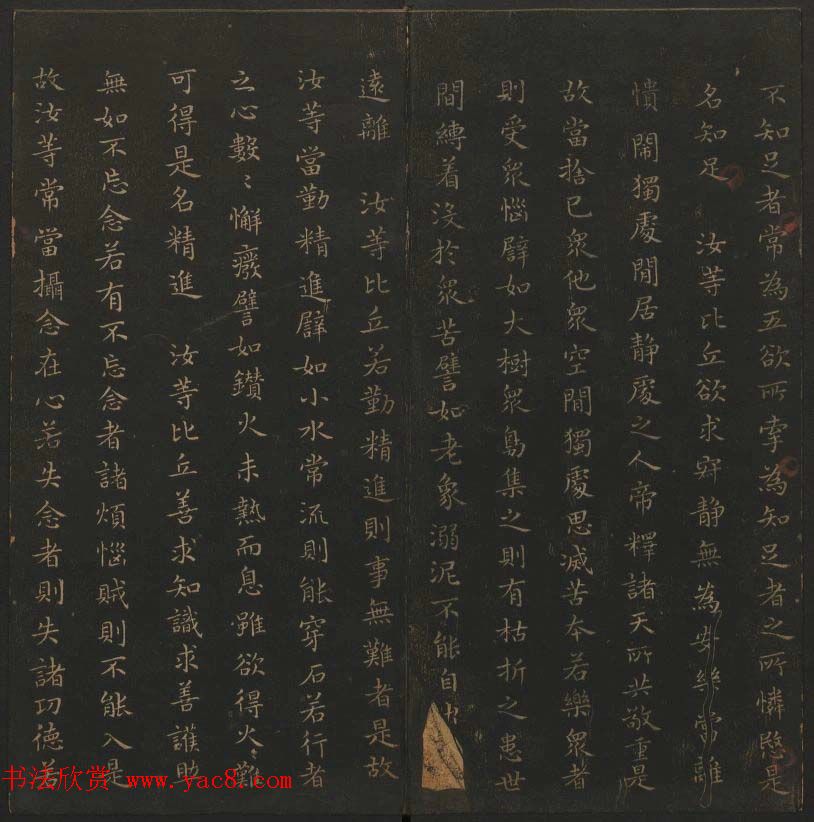 不知足者常為五欲所牽為知足者之所憐愍是
名知足 汝等比丘欲求寂静無為安樂當離
憒鬧獨處閒居静處之人帝釋諸天所共敬重是
故當捨已衆他衆空閒獨處思滅苦本若樂衆者
則受衆惱譬如大樹衆鳥集之則有枯折之患世
間縛着沒於衆苦譬如老象溺泥不能自出
遠離 汝等比丘若勤精進則事無難者是故
汝等當勤精進譬如小水常流則能穿石若行者
之心數〻懈癈譬如鑚火未熱而息雖欲得火〻難
可得是名精進 汝等比丘善求知識求善護助
無如不忘念若有不忘念者諸煩惱賊則不能入是
故汝等常當攝念在心若失念者則失諸功德若
书法欣赏 www.yac8.com